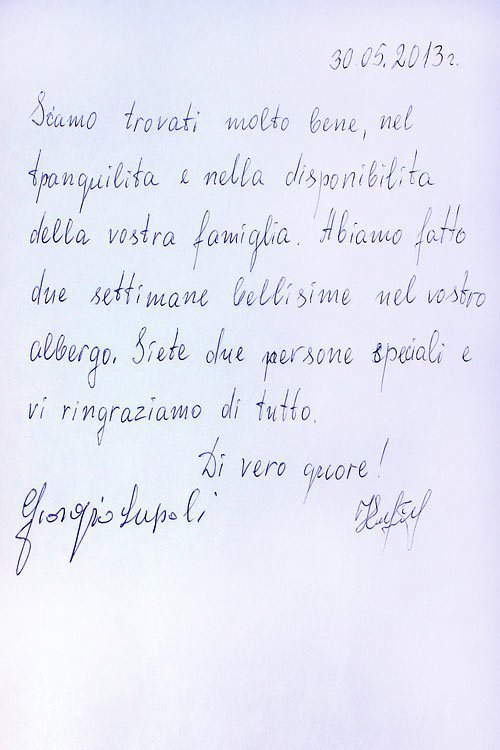 30.05.2013г.
Siamo trovati molto bene, nel
tranquilita e nella disponibilita
della vostra famiglia. Abiamo fatto
due settimane bellisime nel vostro
albergo. Siete due persone speciali e
vi ringraziamo di tutto.
Di vero quore!
Giorgio Lupoli